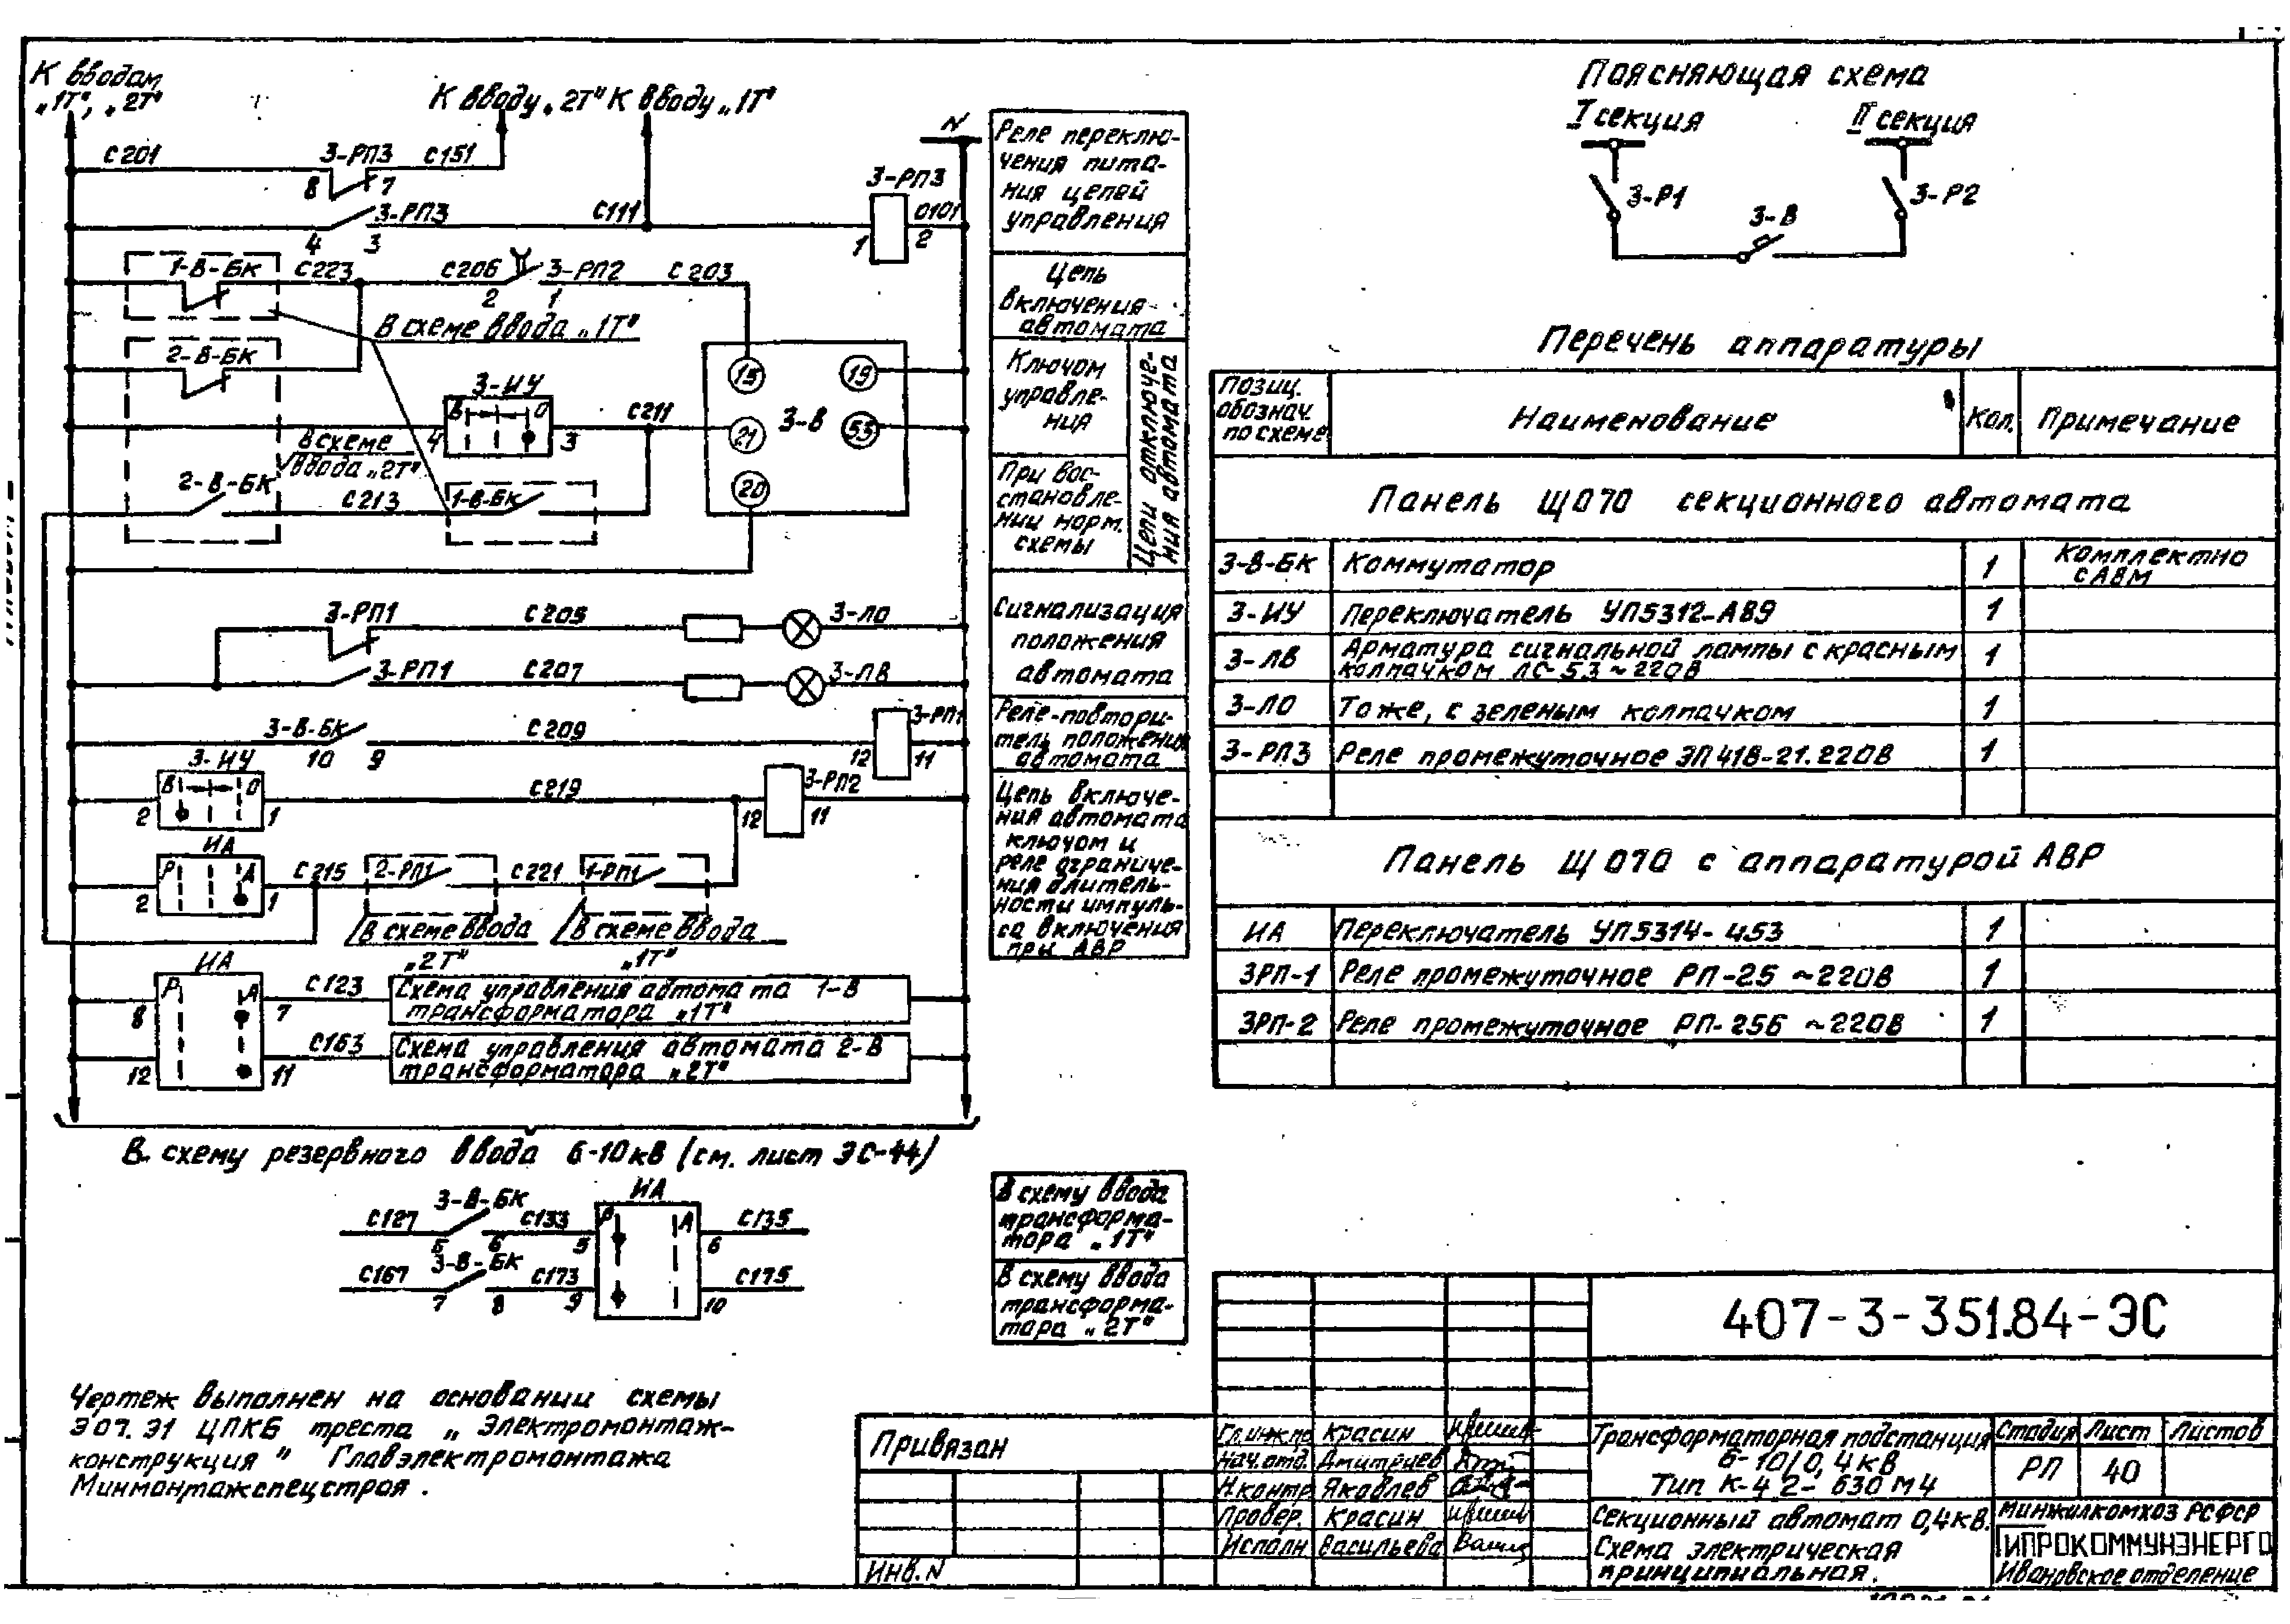 К вводам
„1Т", „2Т"
К вводу „2Т" К вводу „1Т"
N
С201
3-РП3
С151
8
7
3-РП3
С111
4
3
3-РП3
0101
1
2
1-В-БК
С223
С206
3-РП2
С203
2
1
В схеме ввода „1Т"
2-В-БК
3-ИУ
В
О
4
3
С211
В схеме
ввода „2Т"
2-В-БК
С213
1-В-БК
15
19
21
3-В
53
20
3-РП1
С205
3-ЛО
3-РП1
С207
3-ЛВ
3-В-БК
10
9
С209
3-РП1
12
11
3-ИУ
В
О
2
1
С219
3-РП2
12
11
ИА
Р
А
2
1
С215
2-РП1
С221
1-РП1
В схеме ввода
„2Т"
В схеме ввода
„1Т"
ИА
Р
А
8
7
С123
Схема управления автомата 1-В
трансформатора „1Т"
12
11
С163
Схема управления автомата 2-В
трансформатора „2Т"
В схему резервного ввода 6-10кВ (см. лист ЭС-44)
Реле переклю-
чения пита-
ния цепей
управления
Цепь
включения
автомата
Ключом
управле-
ния
При вос-
становле-
нии норм.
схемы
Цепи отключе-
ния автомата
Сигнализация
положения
автомата
Реле-повтори-
тель положения
автомата
Цепь включе-
ния автомата
ключом и
реле ограниче-
ния длитель-
ности импуль-
са включения
при АВР
С127
3-В-БК
5
6
С133
5
ИА
Р
А
6
С135
С167
3-В-БК
7
8
С173
9
10
С175
В схему ввода
трансформа-
тора „1Т"
В схему ввода
трансформа-
тора „2Т"
Чертеж выполнен на основании схемы
Э07.Э1 ЦПКБ треста „Электромонтаж-
конструкция" Главэлектромонтажа
Минмонтажспецстроя.
Поясняющая схема
I секция
II секция
3-Р1
3-В
3-Р2
Перечень аппаратуры
Позиц.
обознач.
по схеме
Наименование
Кол.
Примечание
Панель ЩО70 секционного автомата
3-В-БК
Коммутатор
1
Комплектно
с АВМ
3-ИУ
Переключатель УП5312-АВ9
1
3-ЛВ
Арматура сигнальной лампы с красным
колпачком ЛС-53 ~220В
1
3-ЛО
То же, с зеленым колпачком
1
3-РП3
Реле промежуточное ЭП41В-21.220В
1
Панель ЩО70 с аппаратурой АВР
ИА
Переключатель УП5314-Ч53
1
3РП-1
Реле промежуточное РП-25 ~220В
1
3РП-2
Реле промежуточное РП-256 ~220В
1
407-3-351.84-ЭС
Привязан
Инв. N
Гл.инж.пр. Красин
Нач.отд. Дмитриев
Н.контр. Яковлев
Провер. Красин
Исполн. Васильева
Трансформаторная подстанция
6-10/0,4кВ
Тип К-42-630М4
Стадия
Лист
Листов
РП
40
Секционный автомат 0,4кВ.
Схема электрическая
принципиальная.
Минжилкомхоз РСФСР
ГИПРОКОММУНЭНЕРГО
Ивановское отделение